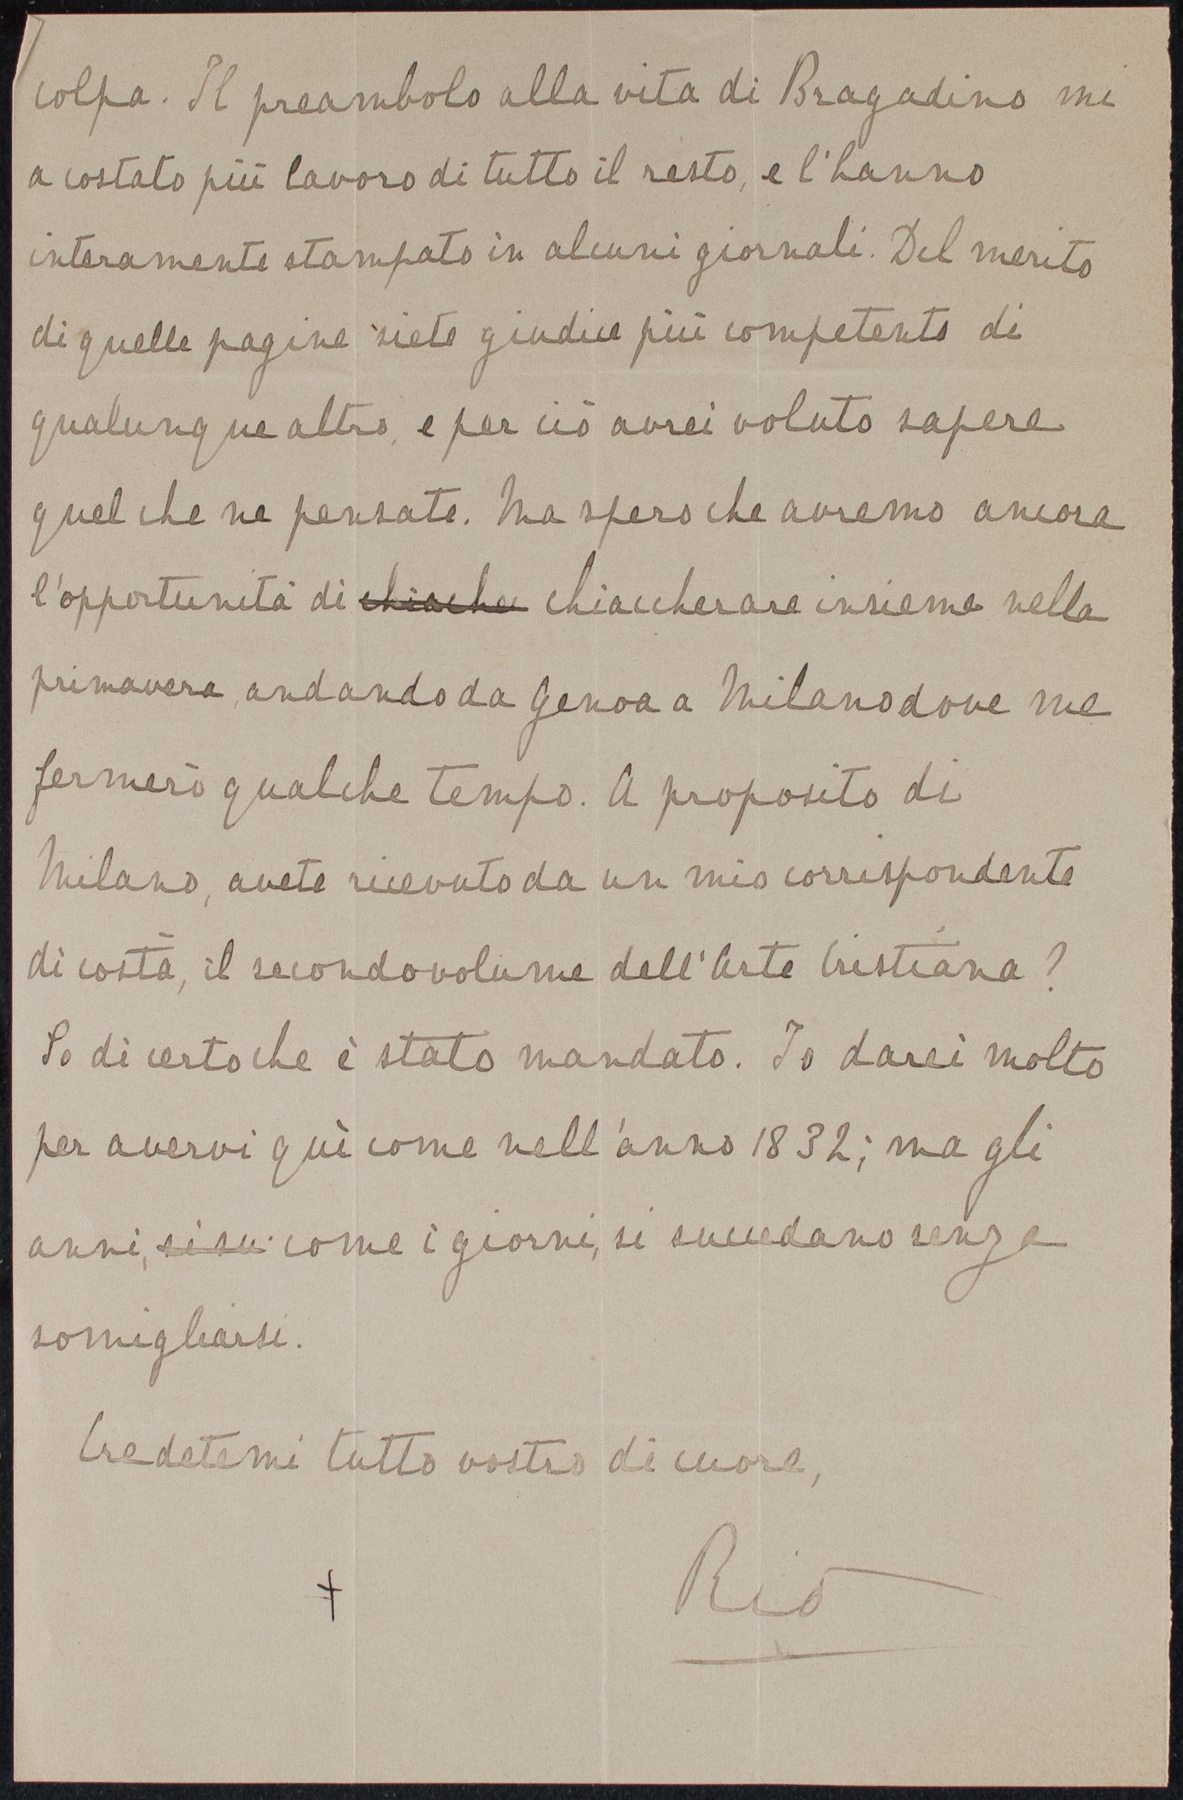 colpa. Il preambolo alla vita di Bragadino mi
a costato più lavoro di tutto il resto, e l'hanno
interamente stampato in alcuni giornali. Del merito
di quelle pagine siete giudice più competente di
qualunque altro, e per ciò avrei voluto sapere
quel che ne pensate. Ma spero che avremo ancora
l'opportunità di chiache chiaccherare insieme nella
primavera, andando da Genoa a Milano dove me
fermerò qualche tempo. A proposito di
Milano, avete ricevuto da un mio corrispondente
di costà, il secondo volume dell'Arte Cristiana?
So di certo che è stato mandato. Io darei molto
per avervi quì come nell'anno 1832; ma gli
anni, si su come i giorni, si succedano senza
somigliarsi.
Credetemi tutto vostro di cuore,
Rio